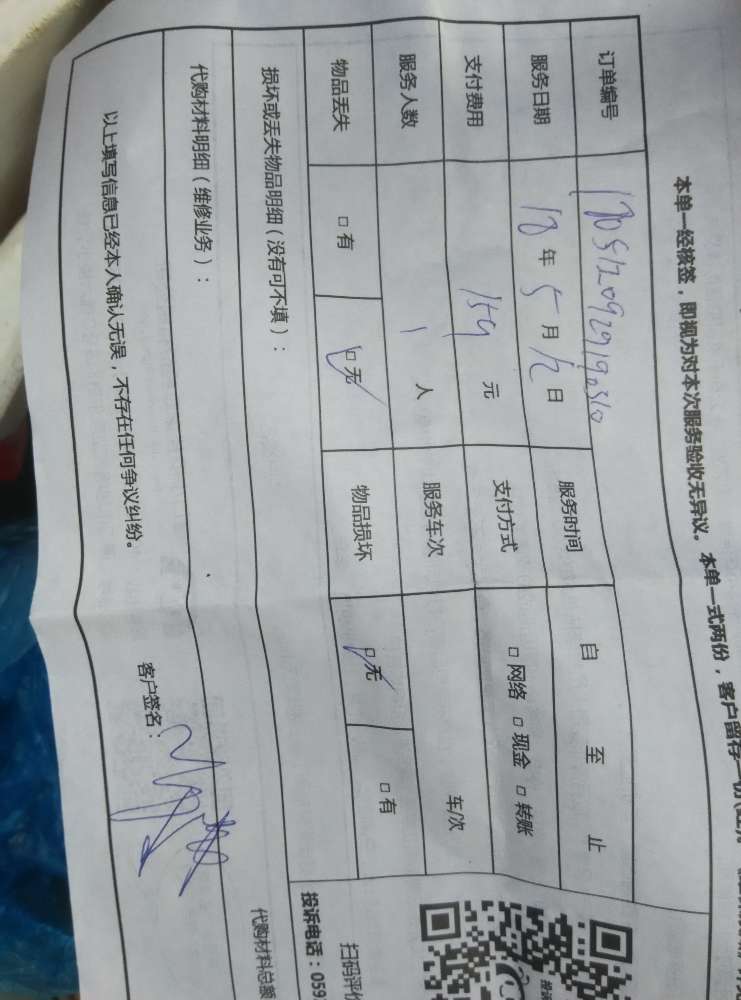 本单一经核签，即视为对本次服务验收无异议。本单一式两份，客户留存一份
订单编号
服务日期 18 年 5 月 12 日 服务时间 自 至 止
支付费用 159 元 支付方式 □ 网络 □ 现金 □ 转账
服务人数 1 人 服务车次 车次
物品丢失 □ 有 □ 无 物品损坏 □ 无 □ 有
损坏或丢失物品明细（没有可不填）：
代购材料明细（维修业务）：
代购材料总额
以上填写信息已经本人确认无误，不存在任何争议纠纷。
客户签名：
扫码评价
投诉电话：059